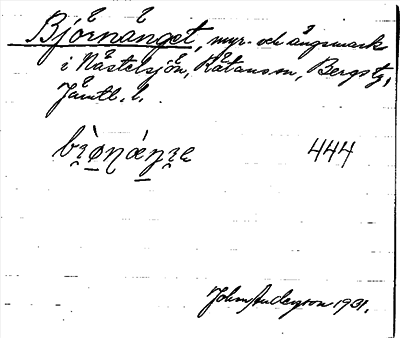 Björnänget, myr- och ängsmark
i Nästelsjön, Rätansm, Bergs tg,
Jämtl. l.
444
John Anderson 1931.